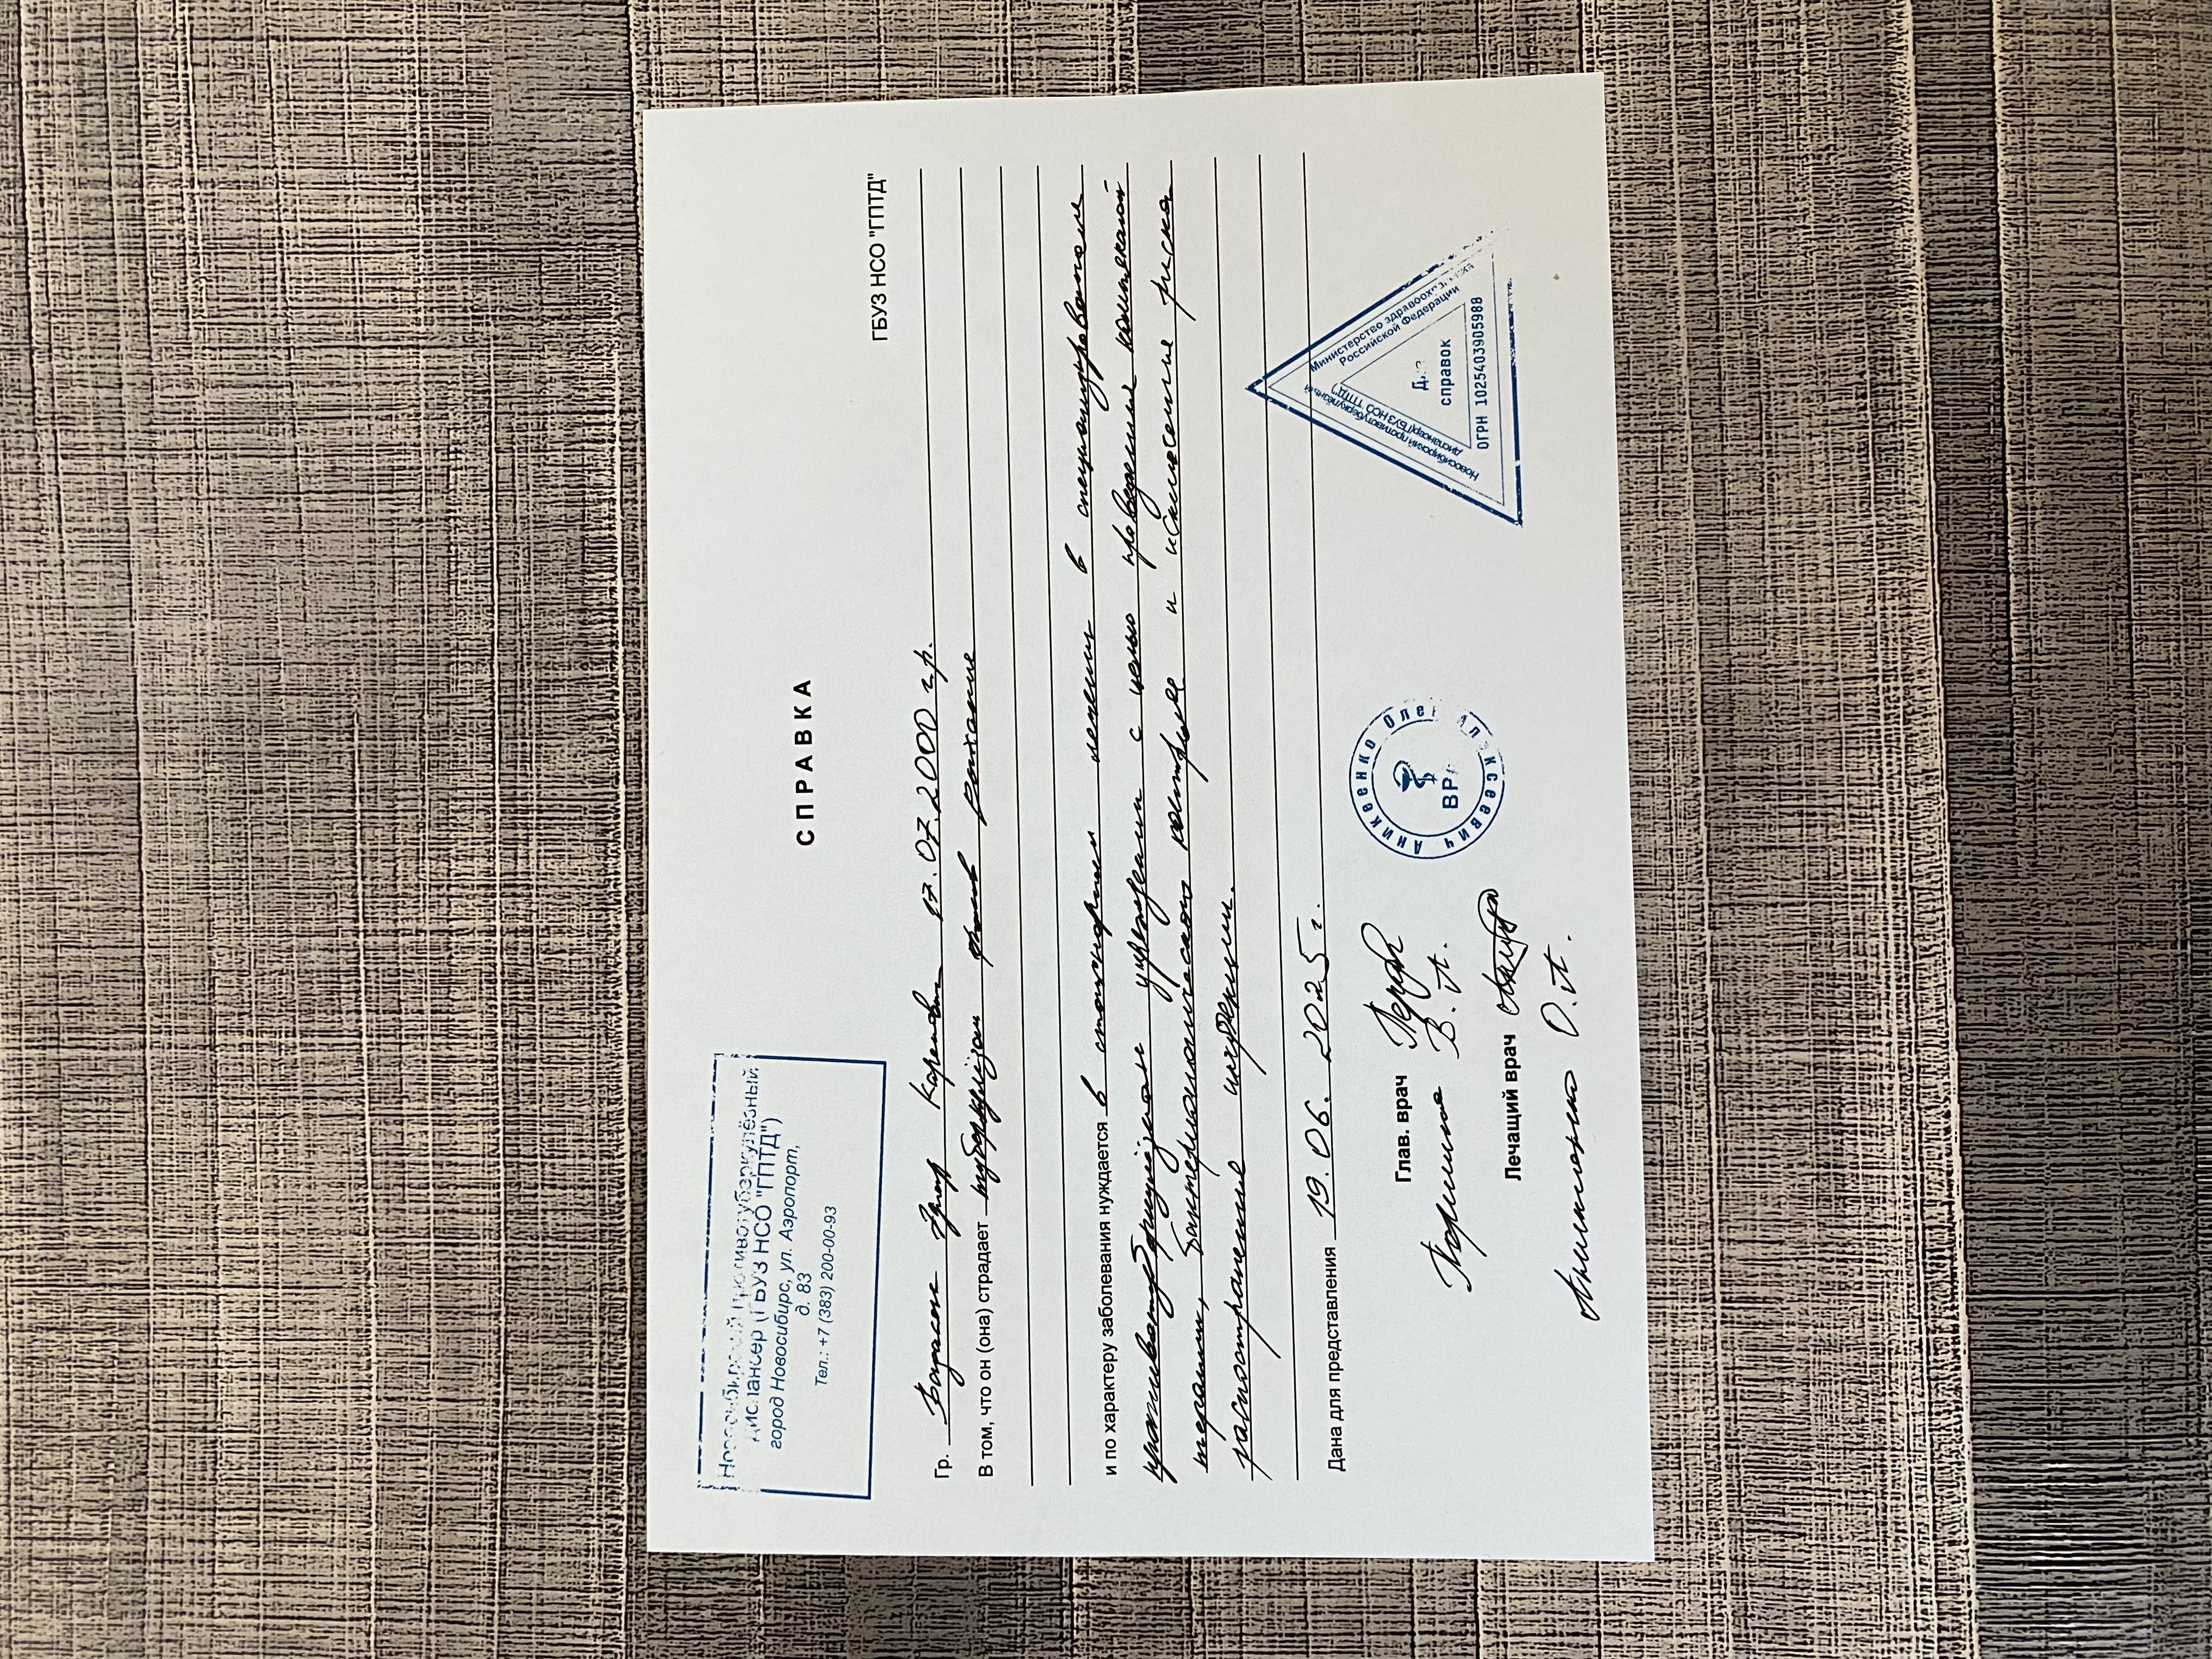 Новосибирский противотуберкулёзный
диспансер (ГБУЗ НСО "ГПТД")
город Новосибирс, ул. Аэропорт,
д. 83
Тел.: +7 (383) 200-00-93
СПРАВКА
ГБУЗ НСО "ГПТД"
Гр. Каренович 17.07.2000 г.р.
В том, что он (она) страдает туберкулёзом
и по характеру заболевания нуждается в стационарном лечении в специализированном
противотуберкулёзном учреждении с целью проведения комплексной
терапии, бактериологического контроля и исключение риска
распространения инфекции.
Дана для представления 19.06.2025 г.
Глав. врач
В. А.
Лечащий врач
О. А.
Аникеенко Олег Алексеевич
ВРАЧ
Министерство здравоохранения
Российской Федерации
Новосибирский противотуберкулёзный
диспансер (ГБУЗ НСО "ГПТД")
Для
справок
ОГРН 1025403905988